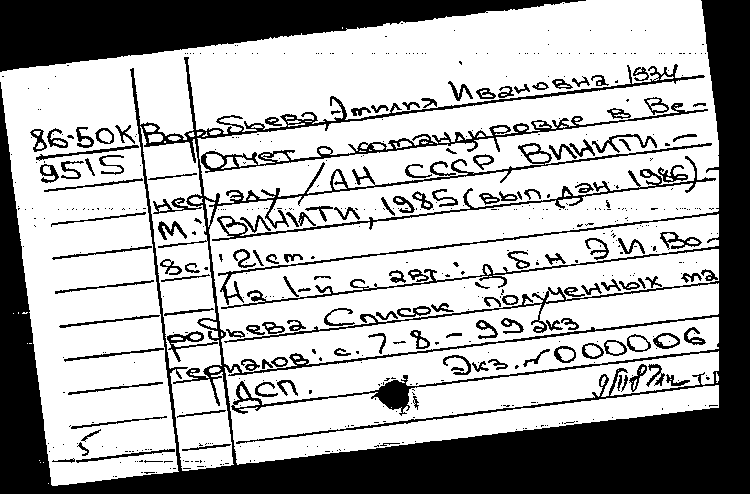 86-50К Воробьева, Эмилия Ивановна. 1934
9515 Отчет о командировке в Ве-
несуэлу / АН СССР, ВИНИТИ. -
М.: ВИНИТИ, 1985 (вып. дан. 1986). -
8с. ; 21см.
На 1-й с. авт.: д.б.н. Э.И. Во-
робьева. Список полученных ма
териалов: с. 7-8. - 99 экз.
ДСП. Экз. № 000006.
т.
5